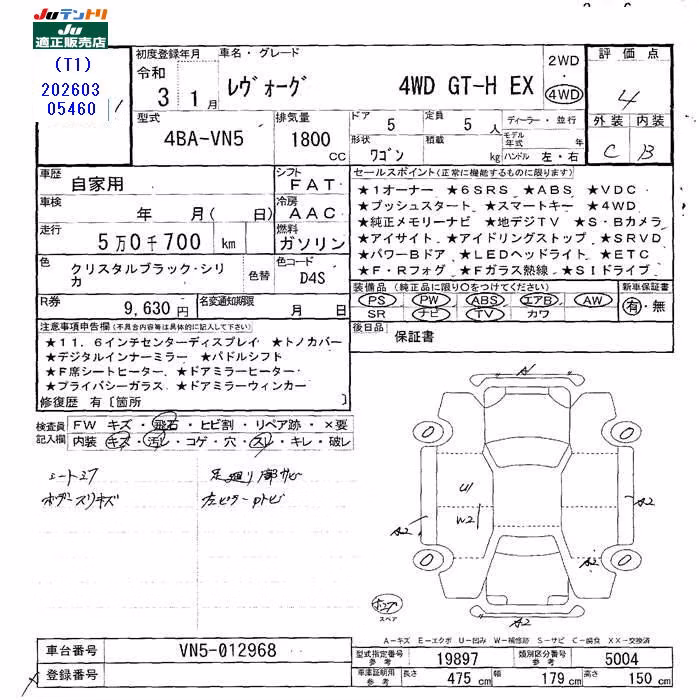 Juテントリ
Ju
適正販売店
(T1)
202603
05460
初度登録年月 車名・グレード
令和 3年 1月 レヴォーグ 4WD GT-H EX 2WD・4WD
評価点
4
外装 内装
C B
型式 4BA-VN5
排気量 1800 CC
ドア 5 定員 5人 ディーラー・並行
形状 ワゴン 積載 kg モデル年式 年
ハンドル 左・右
車歴 自家用
シフト FAT
車検 年 月( 日)
冷房 AAC
走行 5万0千700 km
燃料 ガソリン
色 クリスタルブラック・シリカ 色替
色コード D4S
R券 9,630円
名変通知期限 月 日
セールスポイント(正常に機能するものに限ります)
★1オーナー ★6SRS ★ABS ★VDC
★プッシュスタート ★スマートキー ★4WD
★純正メモリーナビ ★地デジTV ★S・Bカメラ
★アイサイト ★アイドリングストップ ★SRVD
★パワーBドア ★LEDヘッドライト ★ETC
★F・Rフォグ ★Fガラス熱線 ★SIドライブ
装備品(純正品に限り〇をつけてください) 新車保証書
PS PW ABS エアB AW 有・無
SR ナビ TV カワ
後日品 保証書
注意事項申告欄(不具合内容等は具体的に記入して下さい)
★11.6インチセンターディスプレイ ★トノカバー
★デジタルインナーミラー ★パドルシフト
★F席シートヒーター ★ドアミラーヒーター
★プライバシーガラス ★ドアミラーウィンカー
修復歴 有〔箇所 〕
検査員記入欄
FW キズ・飛石・ヒビ割・リペア跡・×要
内装 キズ・汚レ・コゲ・穴・スレ・キレ・破レ
足廻り部サビ
ボデースリキズ
U1
W2
A2
A2
A2
A2
A2
スペア
A-キズ E-エクボ U-凹み W-補修跡 S-サビ C-腐食 XX-交換済
車台番号 VN5-012968
登録番号
型式指定番号 参考 19897 類別区分番号 参考 5004
車庫証明用 参考 長さ 475 cm 幅 179 cm 高さ 150 cm